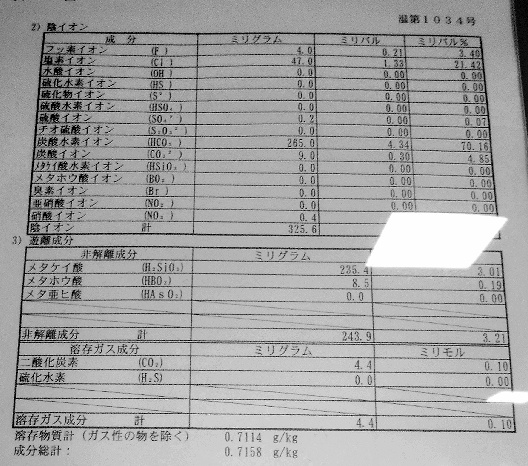 温第1034号
2) 陰イオン
成分 ミリグラム ミリバル ミリバル%
フッ素イオン (F') 4.0 0.21 3.40
塩素イオン (Cl') 47.0 1.33 21.42
水酸イオン (OH') 0.0 0.00 0.00
硫化水素イオン (HS') 0.0 0.00 0.00
硫化物イオン (S") 0.0 0.00 0.00
硫酸水素イオン (HSO₄') 0.0 0.00 0.00
硫酸イオン (SO₄") 0.2 0.00 0.07
チオ硫酸イオン (S₂O₃") 0.0 0.00 0.00
炭酸水素イオン (HCO₃') 265.0 4.34 70.16
炭酸イオン (CO₃") 9.0 0.30 4.85
メタケイ酸水素イオン (HSiO₃') 0.0 0.00 0.00
メタホウ酸イオン (BO₂') 0.0 0.00 0.00
臭素イオン (Br') 0.0 0.00 0.00
亜硝酸イオン (NO₂') 0.0 0.00 0.00
硝酸イオン (NO₃') 0.4
陰イオン 計 325.6
3) 遊離成分
非解離成分 ミリグラム
メタケイ酸 (H₂SiO₃) 235.4 3.01
メタホウ酸 (HBO₂) 8.5 0.19
メタ亜ヒ酸 (HAsO₂) 0.0 0.00
非解離成分 計 243.9 3.21
溶存ガス成分 ミリグラム ミリモル
二酸化炭素 (CO₂) 4.4 0.10
硫化水素 (H₂S) 0.0 0.00
溶存ガス成分 計 4.4 0.10
溶存物質計(ガス性の物を除く) 0.7114 g/kg
成分総計: 0.7158 g/kg